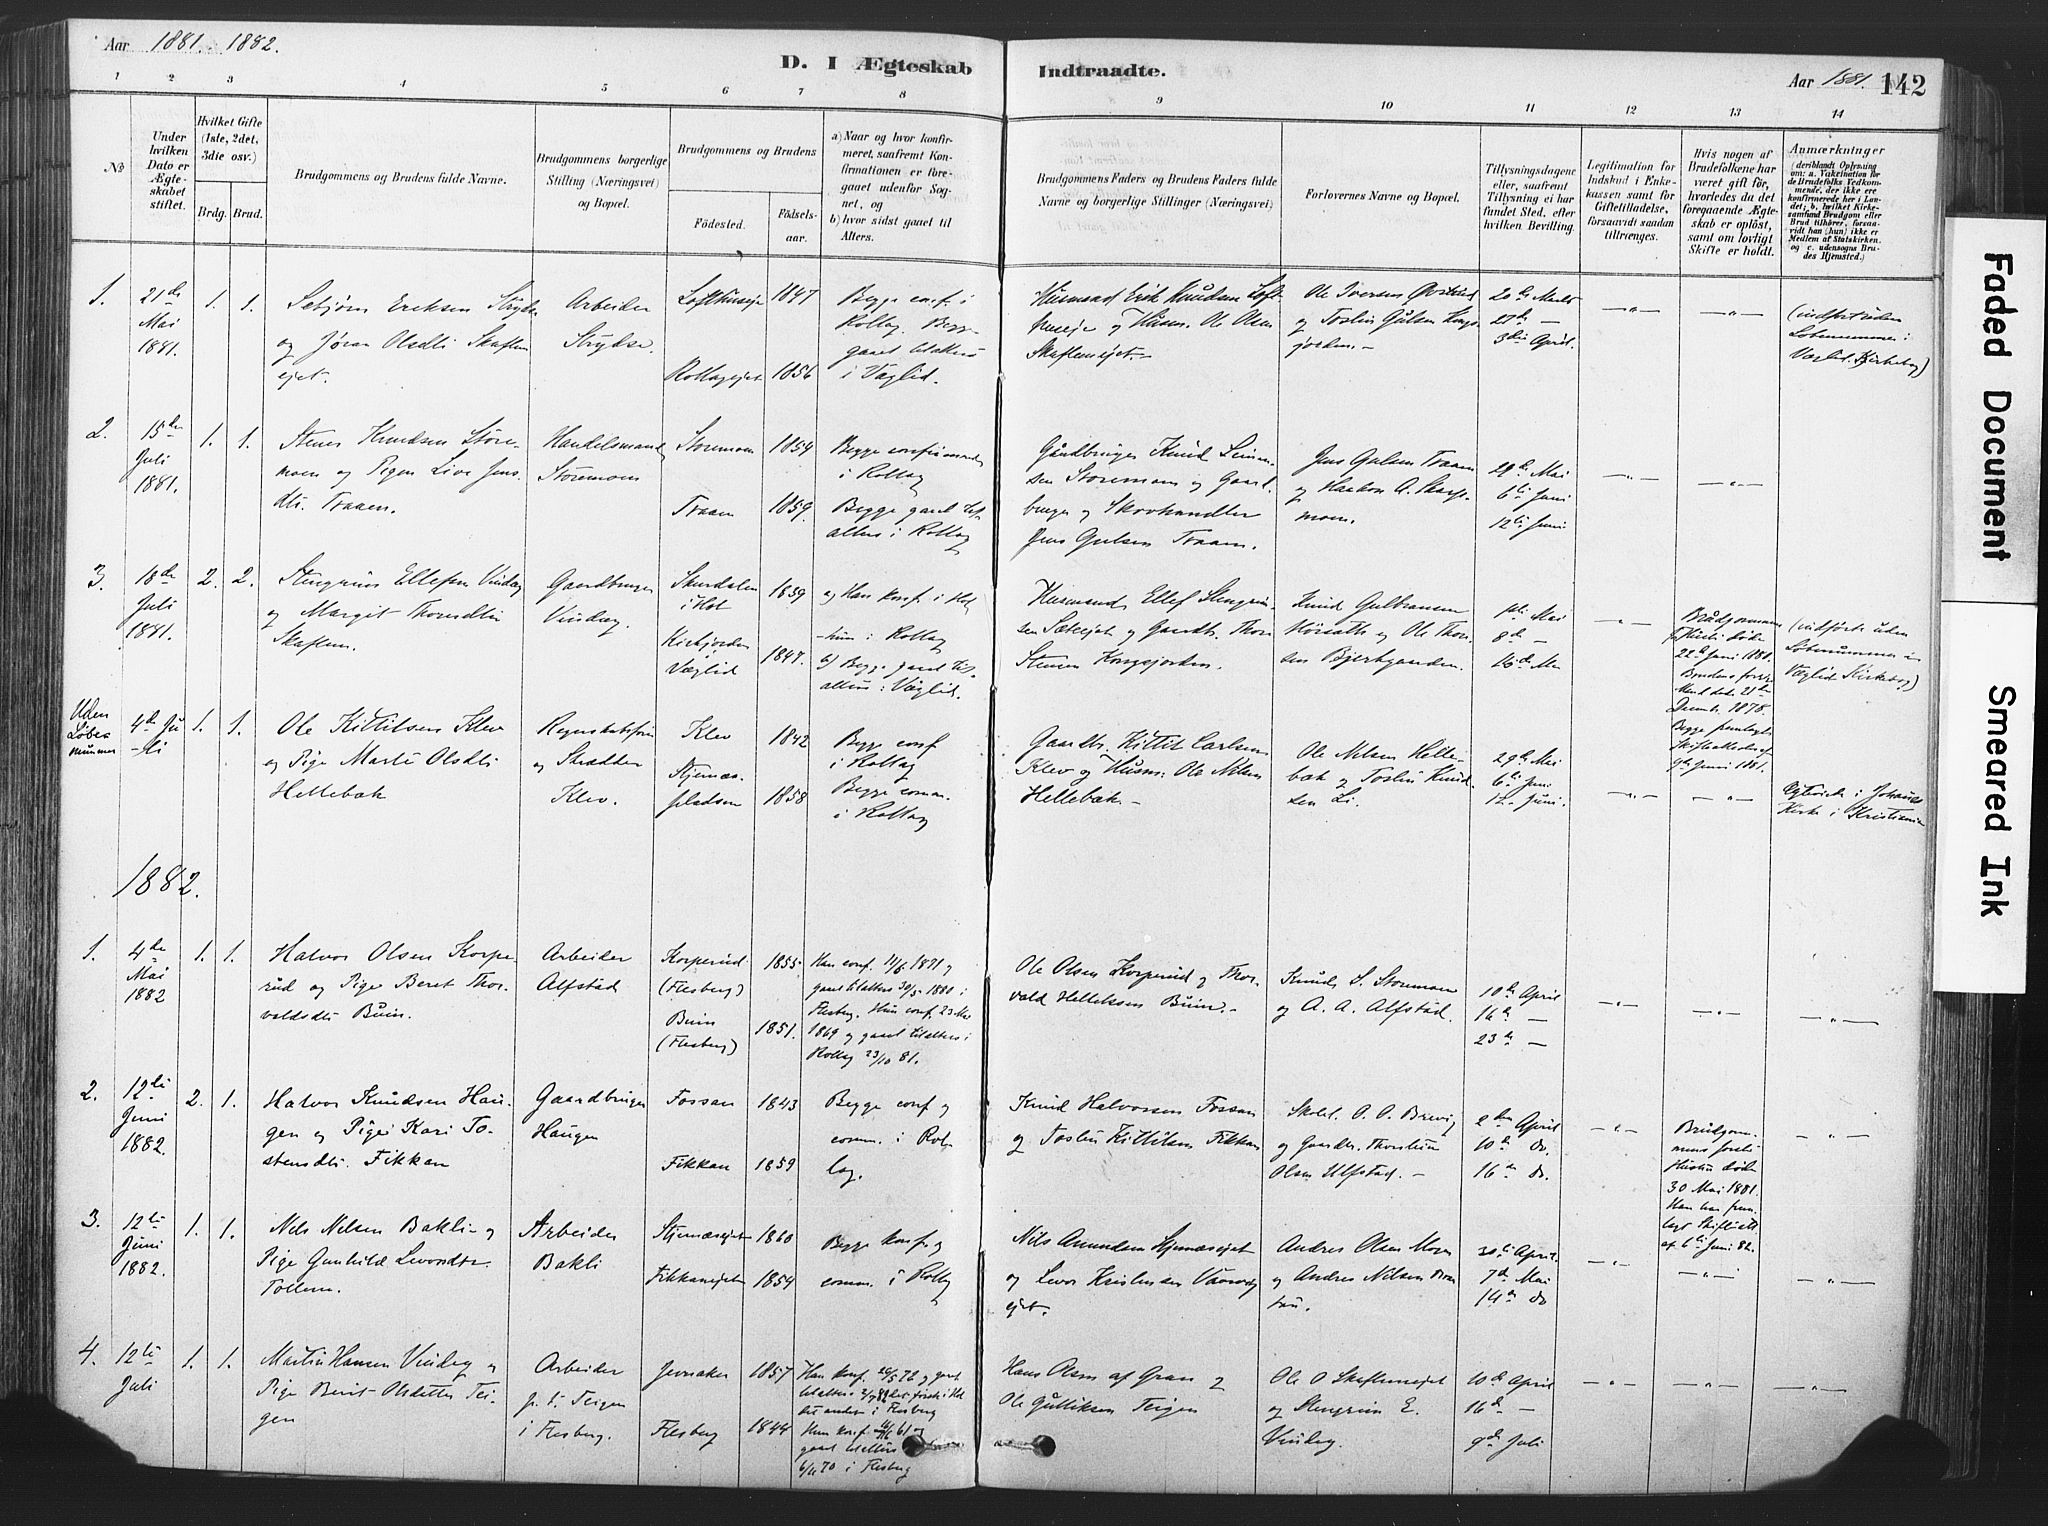 Aar 1881. 1882.
D. I Ægteskab Indtraadte.
Aar 1881. 142
1 2 3 4 5 6 7 8 9 10 11 12 13 14
No
Under hvilken Dato er Ægteskabet stiftet.
Hvilket Gifte (1ste, 2det, 3die osv.)
Brdg. Brud.
Brudgommens og Brudens fulde Navne.
Brudgommens borgerlige Stilling (Næringsvei) og Bopæl.
Brudgommens og Brudens
Födested.
Födsels-aar.
a) Naar og hvor konfirmeret, saafremt Konfirmationen er foregaaet udenfor Sognet, og
b) hvor sidst gaaet til Alters.
Brudgommens Faders og Brudens Faders fulde Navne og borgerlige Stillinger (Næringsvei)
Forlovernes Navne og Bopæl.
Tillysningsdagene eller, saafremt Tillysning ei har fundet Sted, efter hvilken Bevilling.
Legitimation for Indskud i Enkekassen samt for Giftetilladelse, forsaavidt saadan tiltrænges.
Hvis nogen af Brudefolkene har været gift för, hvorledes du det foregaaende Ægteskab er oplöst, samt om lovligt Skifte er holdt.
Anmærkninger
(deriblandt Oplysning om: a. Vakcination for de Brudefolks Vedkommende, der ikke ere konfirmerede her i Landet; b. hvilket Kirkesamfund Brudgom eller Brud tilhörer, forsaavidt han (hun) ikke er Medlem af Statskirken, og c. udensogns Brudes Hjemsted.)
1.
21de Mai 1881.
1. 1.
Sebjørn Eriksen
og Jøran Olsdtr. Skaflem
ejet.
Arbeider
Lofthuseje 1847
Rollagejet 1856
Begge conf. i
Rollag. Begge
gaaet tilalters
i Væglid.
Husmand Erik Knudsen Loft-
huseje og Husm. Ole Olsen
Skaflemejet.
Ole Iversen
og Tostein Gulsen Kongs-
jorden.
20de Marts
27de —
3die April.
—„—
—„—
(indført uden
Løbenummer i
Væglid Kirkebog)
2.
15de Juli 1881.
1. 1.
Stener Knudsen Store-
moen og Pigen Live Jens-
dtr. Traaen.
Handelsmand
Storemoen
Storemoen 1854
Traaen 1859.
i Rollag
Begge gaaet til-
alters i Rollag
Gårdbruger Knud
sen Storemoen og Gaard-
bruger og Skovhandler
Jens Gulsen Traaen.
Jens Gulsen Traaen
og Haakon A.
moen.
29de Mai
6te Juni
12te Juni
—„—
—„—
3.
18de Juli 1881.
2. 2.
Stengrim Ellefsen Vindeg
og Margit Thorsdtr.
Skaflem.
Gaardbruger
Vindeg.
Skurdalen
i Hol 1839
Væglid 1847.
a) Han konf. i Hol
hun i Rollag
b) Begge gaaet til-
alters i Væglid.
Husmand Ellef Stengrim-
sen og Gaardb. Thor
Stenersen Kongsjorden.
Knud Gulbransen
og Ole Thor-
sen
1ste Mai
8de —
—„—
Brudgommens
22de Juni 1880.
Brudens
død 21de
1878.
Begge fremlagt
Skifteattest af
9de Juni 1881.
(indført uden
Løbenummer i
Væglid Kirkebog)
Uden
Løbe
nummer
4de Ju-
li
1. 1.
Ole Kittilsen Klev
og Pige Marte Olsdtr.
Hellebæk
Klev.
Klev 1842
1858
Begge conf
i Rollag
Begge comm.
i Rollag
Gaardbr. Kittil Carlsen
Klev og Husm: Ole Nilsen
Hellebæk —
Ole Nilsen Helle-
bæk og Tostein Knud-
sen Li.
29de Mai
6te Juni
12 Juni.
—„—
—„—
Egteviet i Johannes
Kirke i Kristiania
1882.
1.
4de Mai 1882
1. 1.
Halvor Olsen Korpe-
rud og Pige Beret Thor-
valdsdtr. Buin.
Arbeider
Alfstad
Korperud
(Flesberg) 1855
Buin
(Flesberg) 1851.
Han conf. 11/6 1871 og
gaaet tilalters 30/5 1880 i
Flesberg. Hun conf. 23 Mai
1869 og gaaet tilalters i
Rollag 23/10 81.
Ole Olsen Korperud og Thor-
vald Helleksen Buin.
Knud S. Storemoen
og A. A. Alfstad.
10de April
16de —
23de —
—„—
—„—
—„—
2.
12te Juni 1882.
2. 1.
Halvor Knudsen Hau-
gen og Pige Kari To-
stensdtr. Fikkan
Gaardbruger
Haugen
Fossan 1843
Fikkan 1859
Begge conf og
comm. i Rol-
lag.
Knud Halvorsen Fossan
og Tosten Kittilsen Fikkan
Skolel. O. O. Brevig
og Gaardbr. Thorstein
Olsen Ulfstad. —
2den April
10de do.
16de do.
—„—
Brudgom-
mens forste
Hustru døde
30 Mai 1881.
Han har frem-
lagt Skifteatt.
af 6te Juni 82.
—„—
3.
12te Juni 1882.
1. 1.
Nils Nilsen Bakli og
Pige Gunhild Levorsdtr.
Arbeider
Bakli
Stjernesejet 1860
Fikkanejet 1854
Begge konf. og
comm. i Rollag
Nils Amundsen Stjernesejet
og Levor Kristensen
ejet.
Andres Olsen Moen
og Andres Nilsen
30te April.
7de Mai
14de do
—„—
—„—
—„—
4.
12te Juli
1. 1.
Martin Hansen Vindeg og
Pige Berit Olsdatter Tei-
gen
Arbeider
p. t. Teigen
i Flesberg.
Jevnaker 1857
Flesberg 1844
i Flesberg
gaaet tilalters
i Flesberg
Hans Olsen af Gran og
Ole Gulliksen Teigen
Ole O Skaflemejet
og Stengrim E.
Vindeg.
10de April
16de —
9de Juli
—„—
—„—
—„—
Faded Document
Smeared Ink